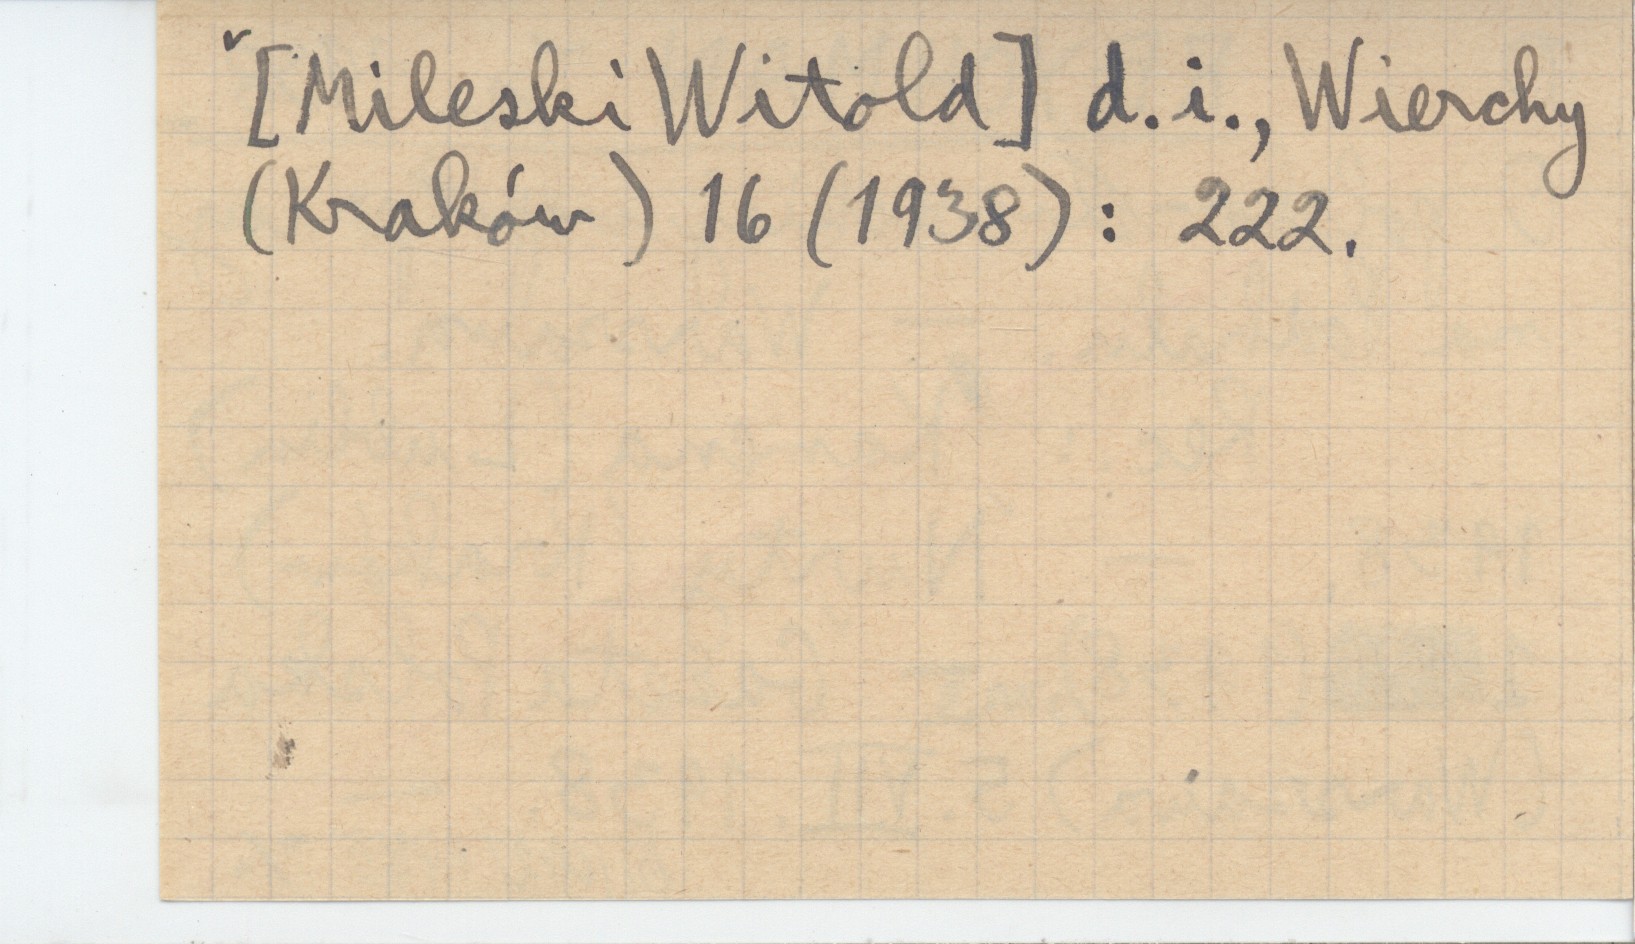 [Mileski Witold] d.i., Wierchy
(Kraków) 16 (1938): 222.